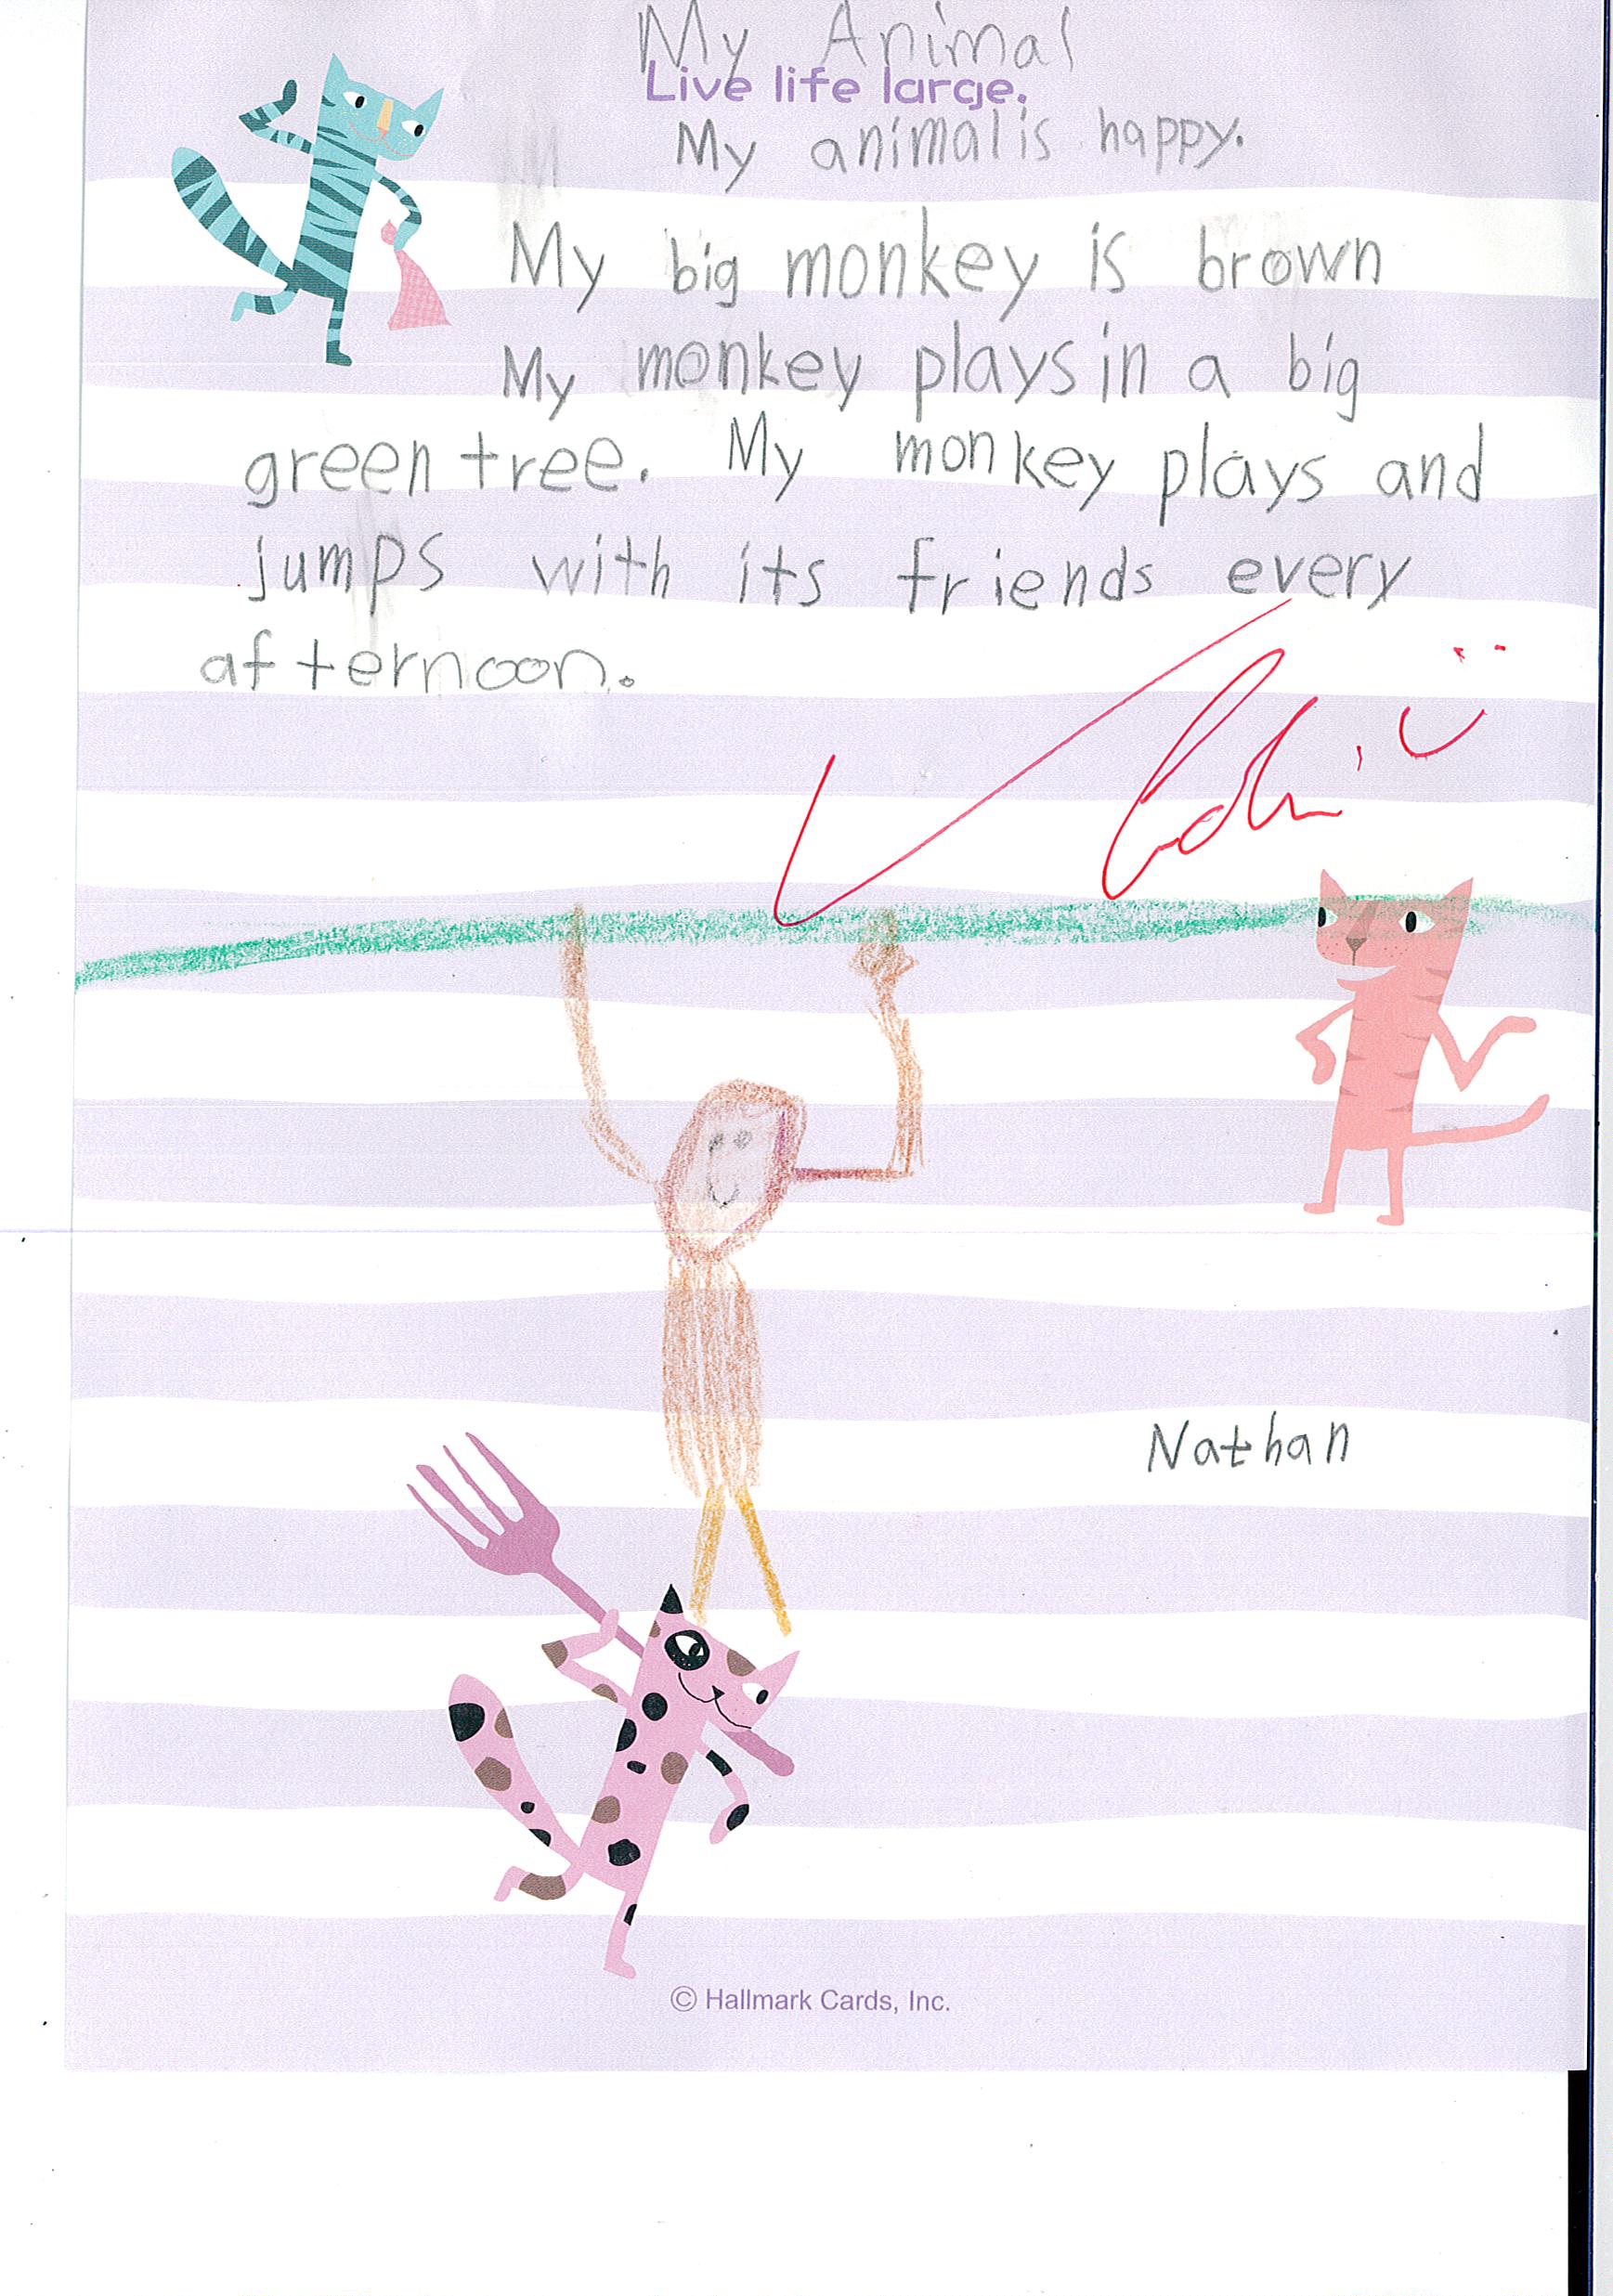 My Animal
Live life large.
My animal is happy.
My big monkey is brown
My monkey plays in a big
green tree. My monkey plays and
jumps with its friends every
afternoon.
Nathan
© Hallmark Cards, Inc.